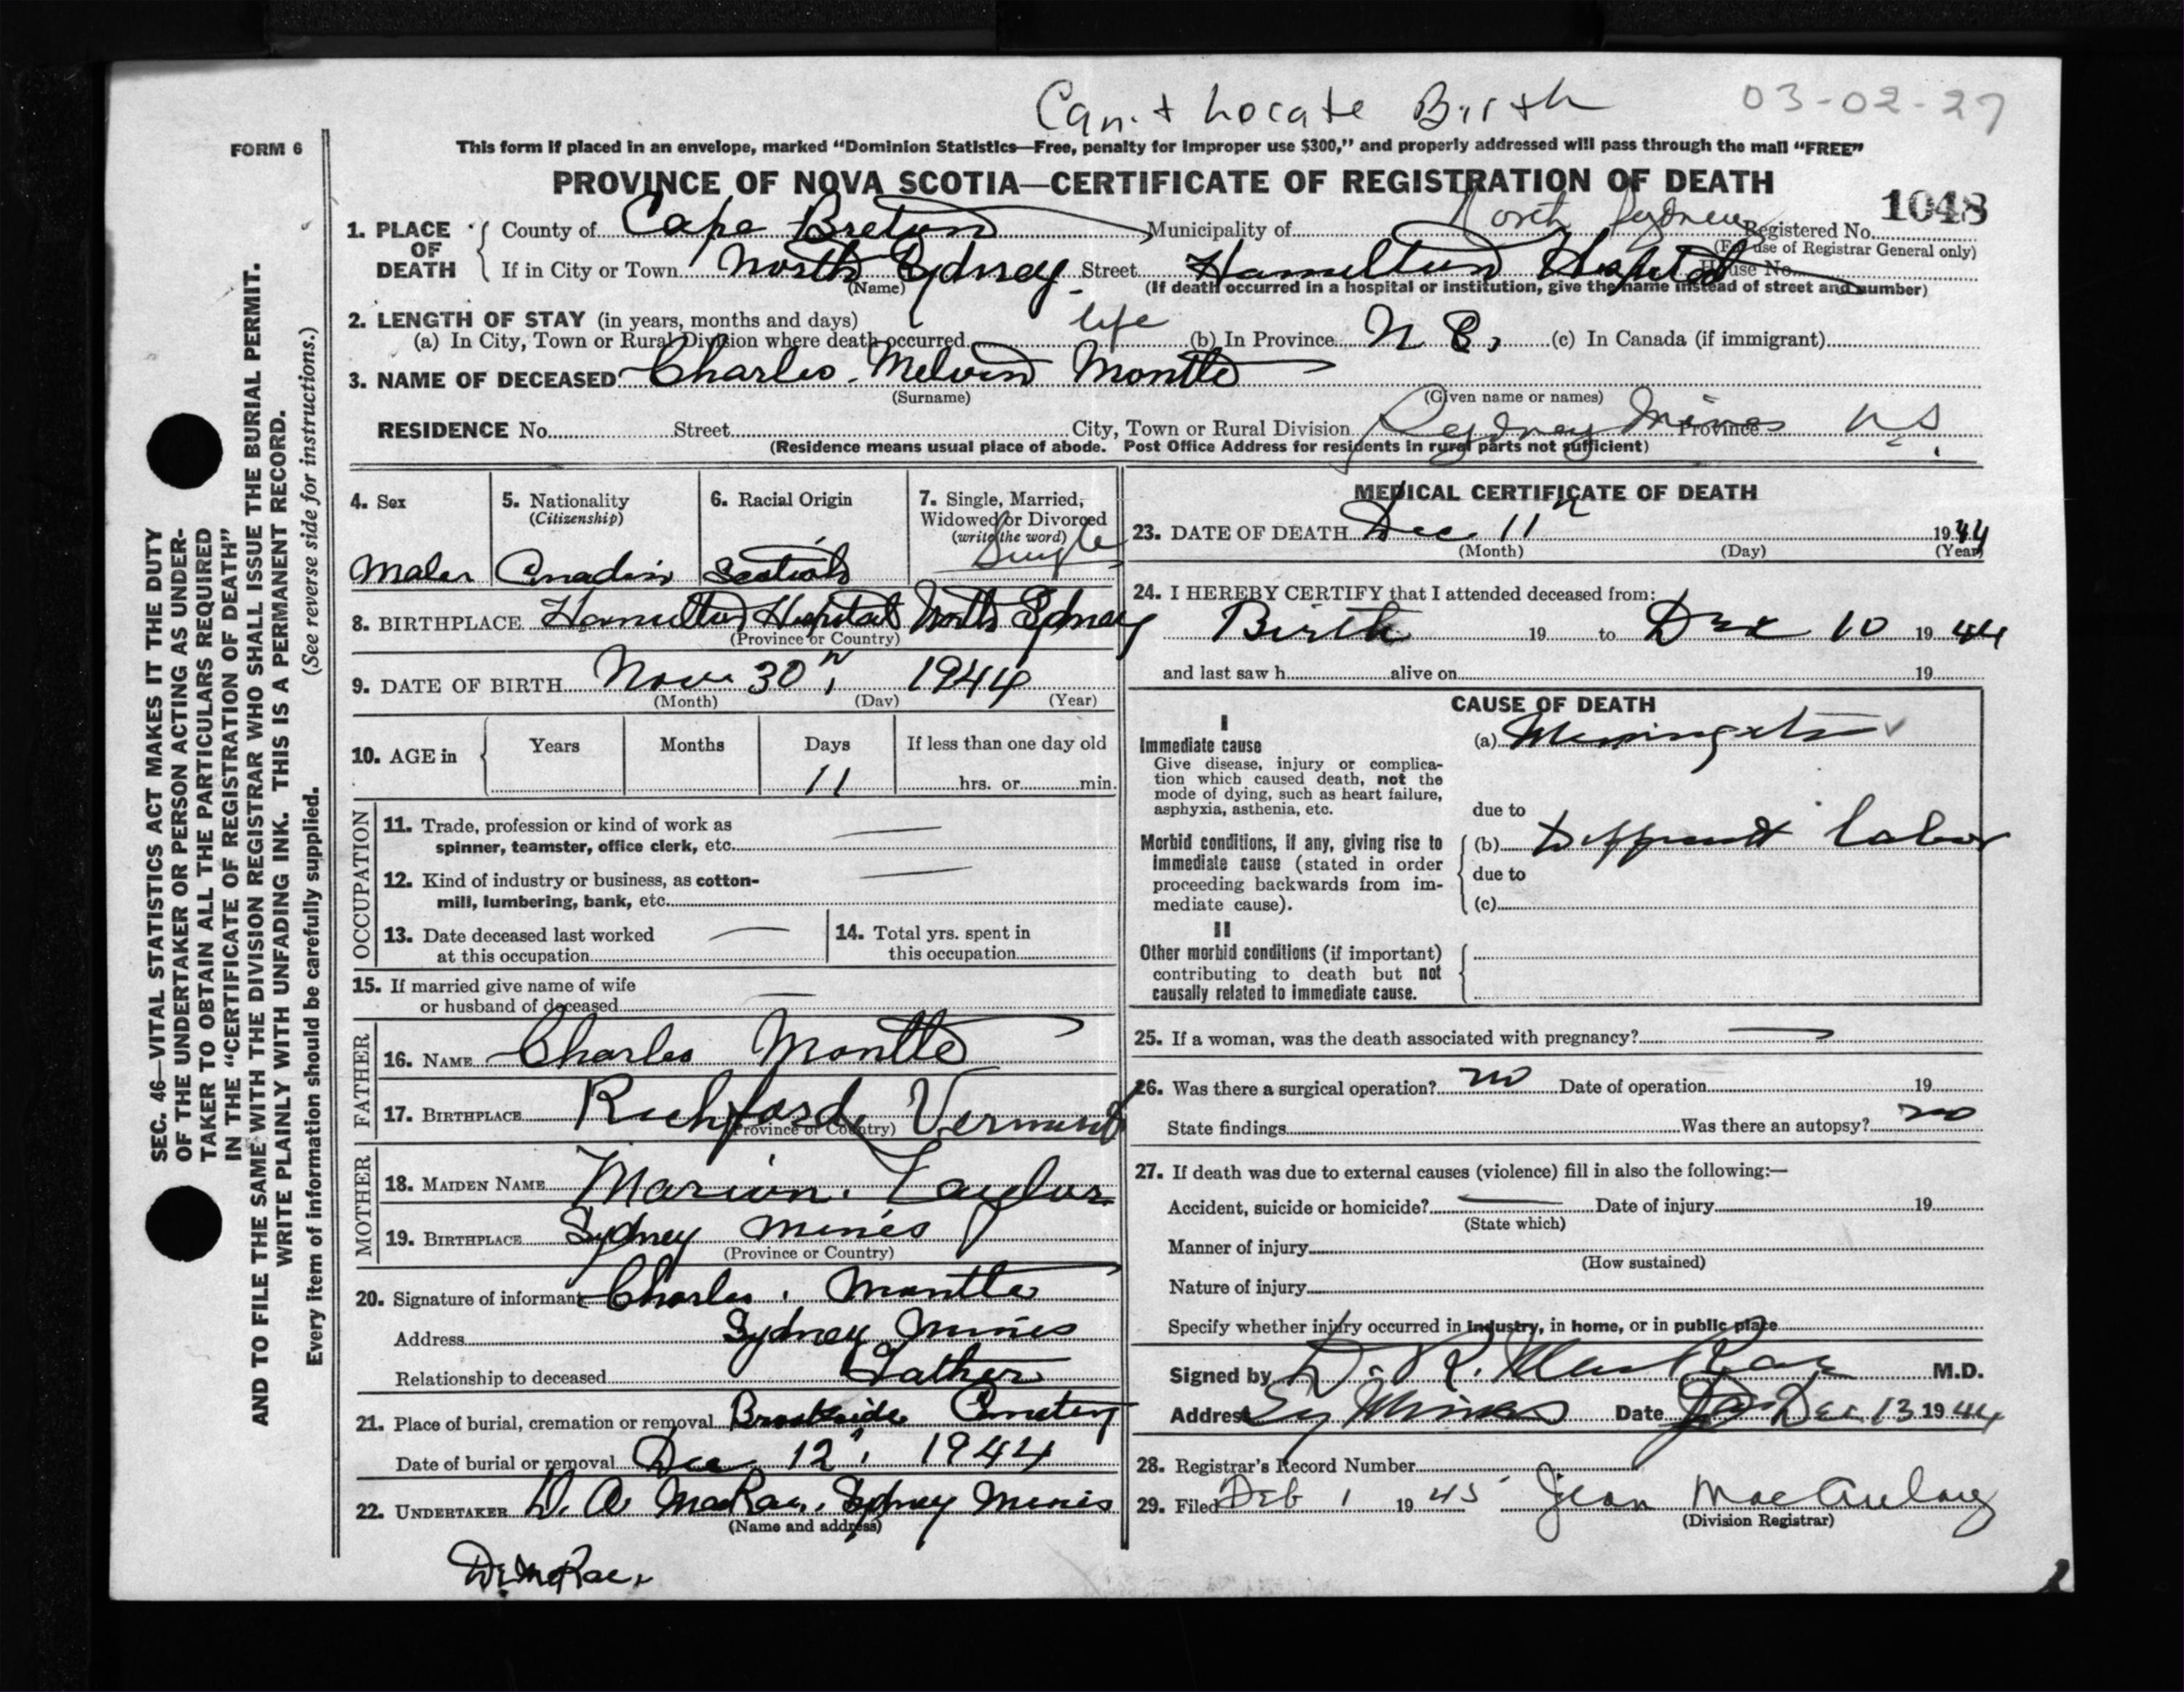 Can't Locate Birth
03-02-27
FORM 6
This form if placed in an envelope, marked "Dominion Statistics—Free, penalty for improper use $300," and properly addressed will pass through the mail "FREE"
PROVINCE OF NOVA SCOTIA—CERTIFICATE OF REGISTRATION OF DEATH
1048
1. PLACE OF DEATH County of Cape Breton Municipality of North Sydney Registered No.
(For use of Registrar General only)
If in City or Town North Sydney Street Hamilton Hospital House No.
(Name) (If death occurred in a hospital or institution, give the name instead of street and number)
2. LENGTH OF STAY (in years, months and days)
(a) In City, Town or Rural Division where death occurred life (b) In Province N S, (c) In Canada (if immigrant)
3. NAME OF DECEASED Charles Melvin Mantle
(Surname) (Given name or names)
RESIDENCE No. Street City, Town or Rural Division Sydney Mines Province N.S.
(Residence means usual place of abode. Post Office Address for residents in rural parts not sufficient)
4. Sex
Male
5. Nationality
(Citizenship)
6. Racial Origin
7. Single, Married, Widowed or Divorced
(write the word)
Single
8. BIRTHPLACE Hamilton Hospital North Sydney
(Province or Country)
9. DATE OF BIRTH Nov 30 1944
(Month) (Day) (Year)
10. AGE in Years Months Days If less than one day old
11 hrs. or min.
OCCUPATION
11. Trade, profession or kind of work as
spinner, teamster, office clerk, etc.
12. Kind of industry or business, as cotton-
mill, lumbering, bank, etc.
13. Date deceased last worked
at this occupation
14. Total yrs. spent in
this occupation
15. If married give name of wife
or husband of deceased
FATHER
16. NAME Charles Mantle
17. BIRTHPLACE Richford Vermont
(Province or Country)
MOTHER
18. MAIDEN NAME Marion Taylor
19. BIRTHPLACE Sydney Mines
(Province or Country)
20. Signature of informant Charles Mantle
Address Sydney Mines
Relationship to deceased Father
21. Place of burial, cremation or removal Brookside Cemetery
Date of burial or removal Dec 12, 1944
22. UNDERTAKER D. A. MacRae, Sydney Mines
(Name and address)
MEDICAL CERTIFICATE OF DEATH
23. DATE OF DEATH Dec 11 1944
(Month) (Day) (Year)
24. I HEREBY CERTIFY that I attended deceased from:
Birth 19 to Dec 10 1944
and last saw h alive on 19
CAUSE OF DEATH
I
Immediate cause
Give disease, injury or complica-
tion which caused death, not the
mode of dying, such as heart failure,
asphyxia, asthenia, etc.
(a) Meningitis
due to
Morbid conditions, if any, giving rise to
immediate cause (stated in order
proceeding backwards from im-
mediate cause).
(b) Difficult labor
due to
(c)
II
Other morbid conditions (if important)
contributing to death but not
causally related to immediate cause.
25. If a woman, was the death associated with pregnancy?
26. Was there a surgical operation? no Date of operation 19
State findings Was there an autopsy? no
27. If death was due to external causes (violence) fill in also the following:—
Accident, suicide or homicide? Date of injury 19
(State which)
Manner of injury
(How sustained)
Nature of injury
Specify whether injury occurred in industry, in home, or in public place
Signed by D. R. MacRae M.D.
Address Sy Mines Date Dec 13 1944
28. Registrar's Record Number
29. Filed Feb 1 1945 Jean MacAulay
(Division Registrar)
D. McRae.
SEC. 46—VITAL STATISTICS ACT MAKES IT THE DUTY
OF THE UNDERTAKER OR PERSON ACTING AS UNDER-
TAKER TO OBTAIN ALL THE PARTICULARS REQUIRED
IN THE "CERTIFICATE OF REGISTRATION OF DEATH"
AND TO FILE THE SAME WITH THE DIVISION REGISTRAR WHO SHALL ISSUE THE BURIAL PERMIT.
WRITE PLAINLY WITH UNFADING INK. THIS IS A PERMANENT RECORD.
Every item of information should be carefully supplied. (See reverse side for instructions.)